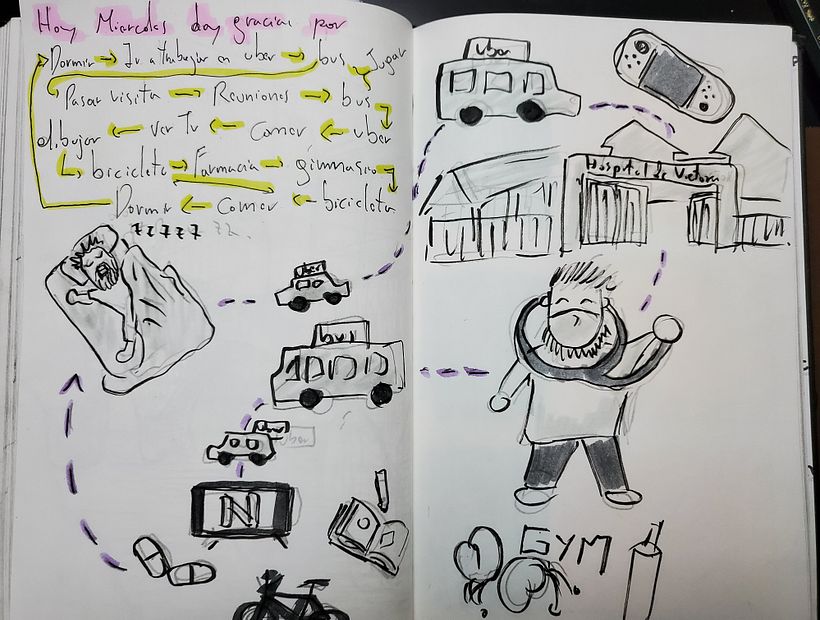 Hoy Miercoles doy gracias por
Dormir → Ir a trabajar en uber → bus Jugar
Pasar visita → Reuniones → bus
dibujar ← Ver Tv ← Comer ← uber
bicicleta → Farmacia → gimnasio
Dormir ← Comer ← bicicleta
zzzzz zz.
uber
bus
uber
uber
N
uber
Hospital de Victoria
GYM